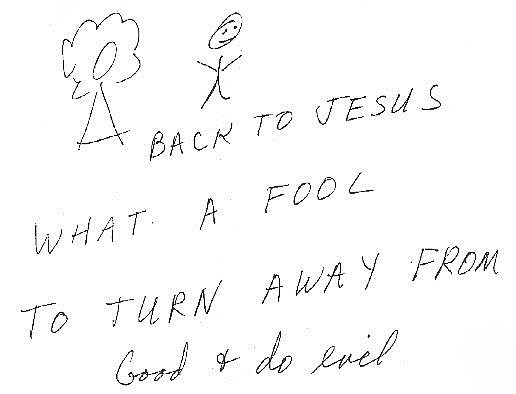 BACK TO JESUS
WHAT A FOOL
TO TURN AWAY FROM
Good & do evil